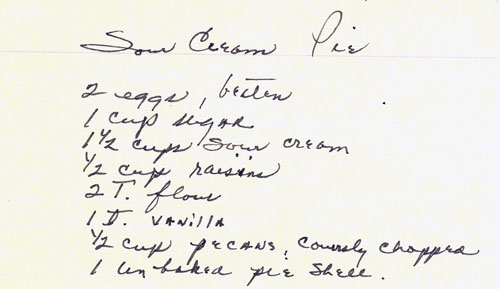 Sour Cream Pie
2 eggs, beaten
1 cup sugar
1 1/2 cups sour cream
1/2 cup raisins
2 T. flour
1 T. vanilla
1/2 cup pecans, coursly chopped
1 unbaked pie shell.